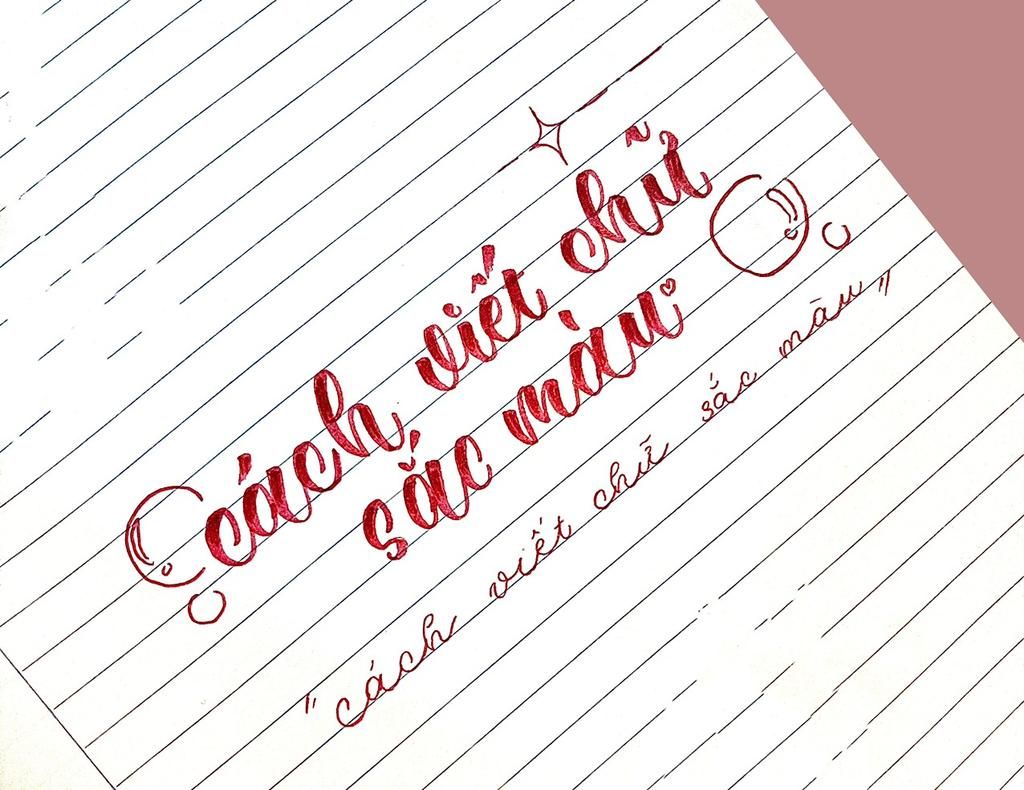 cách viết chữ
sắc màu
"cách viết chữ sắc màu"